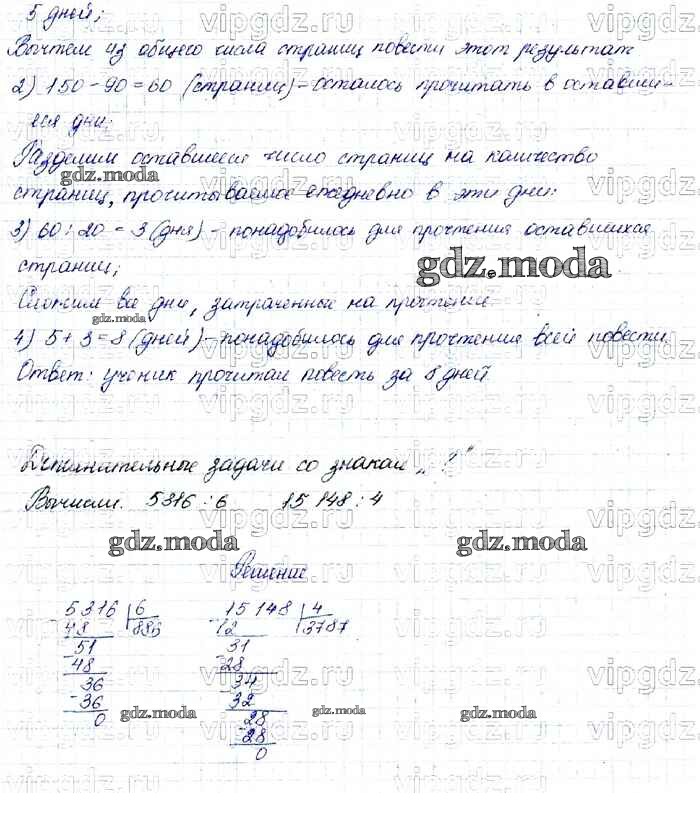 5 дней;
Вычтем из общего числа страниц повести этот результат
2) 150 - 90 = 60 (страниц) - осталось прочитать в оставши-
еся дни;
Разделим оставшееся число страниц на количество
страниц, прочитываемое ежедневно в эти дни:
3) 60 : 20 = 3 (дня) - понадобилось для прочтения оставшихся
страниц;
Сложим все дни, затраченные на прочтение.
4) 5 + 3 = 8 (дней) - понадобилось для прочтения всей повести
Ответ: ученик прочитал повесть за 8 дней
Дополнительные задачи со знаком „!"
Вычисли. 5316 : 6 15 148 : 4
Решение
5316 6 15148 4
48 886 12 3787
51 31
48 28
36 34
36 32
0 28
28
0
gdz.moda
gdz.moda
gdz.moda
gdz.moda
gdz.moda
gdz.moda
gdz.moda
gdz.moda
vipgdz.ru